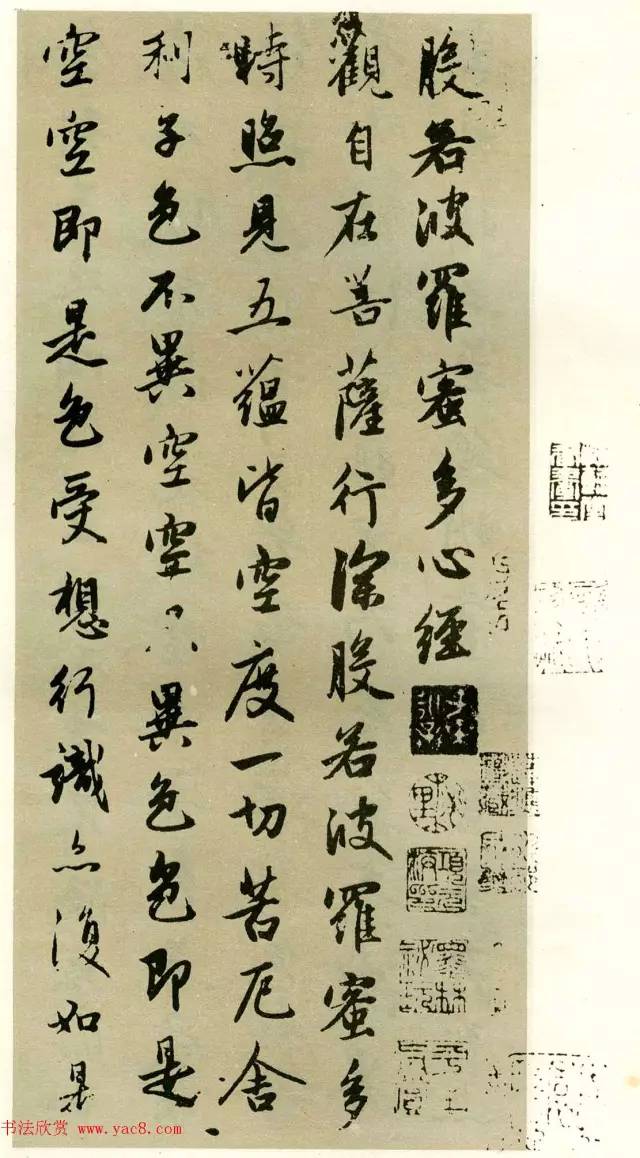 般若波羅蜜多心經
觀自在菩薩行深般若波羅蜜多
時照見五蘊皆空度一切苦厄舍
利子色不異空空不異色色即是
空空即是色受想行識亦復如是
书法欣赏 www.yac8.com